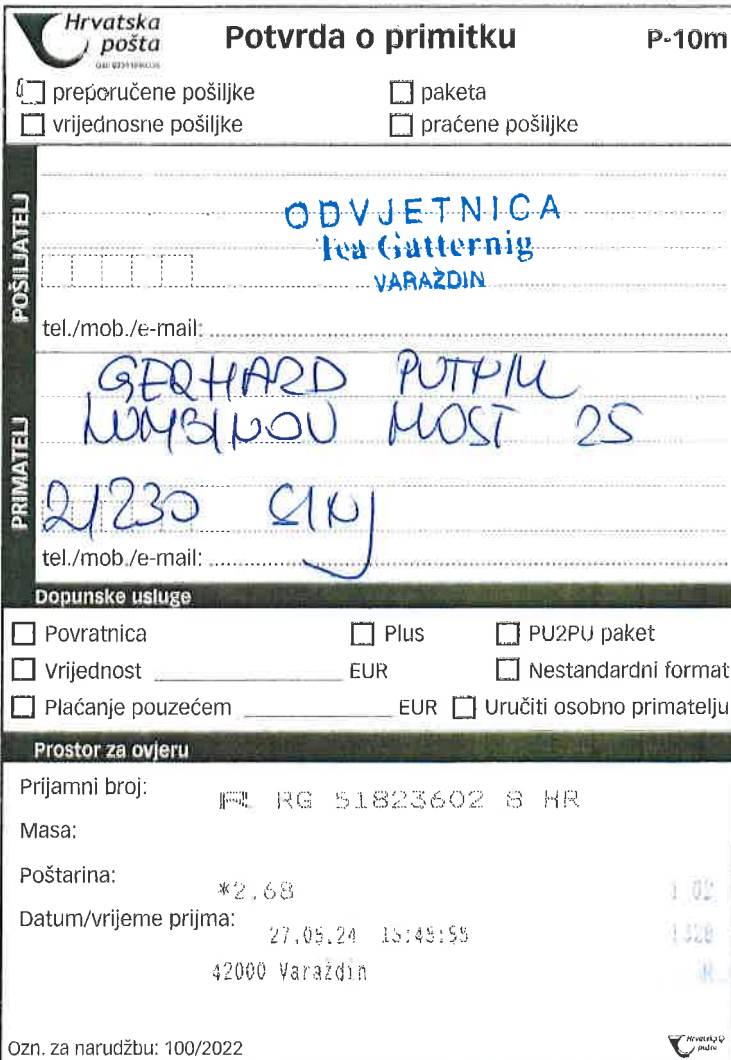 Hrvatska pošta
Potvrda o primitku
P-10m
preporučene pošiljke
paketa
vrijednosne pošiljke
praćene pošiljke
POŠILJATELJ
ODVJETNICA
Tea Gatternig
VARAŽDIN
tel./mob./e-mail:
PRIMATELJ
GERHARD
MOST 25
21230 SINJ
tel./mob./e-mail:
Dopunske usluge
Povratnica
Plus
PU2PU paket
Vrijednost EUR
Nestandardni format
Plaćanje pouzećem EUR
Uručiti osobno primatelju
Prostor za ovjeru
Prijamni broj: R RG 51823602 8 HR
Masa:
Poštarina: *2,68
Datum/vrijeme prijma: 27.05.24
42000 Varaždin
Ozn. za narudžbu: 100/2022
Hrvatska pošta